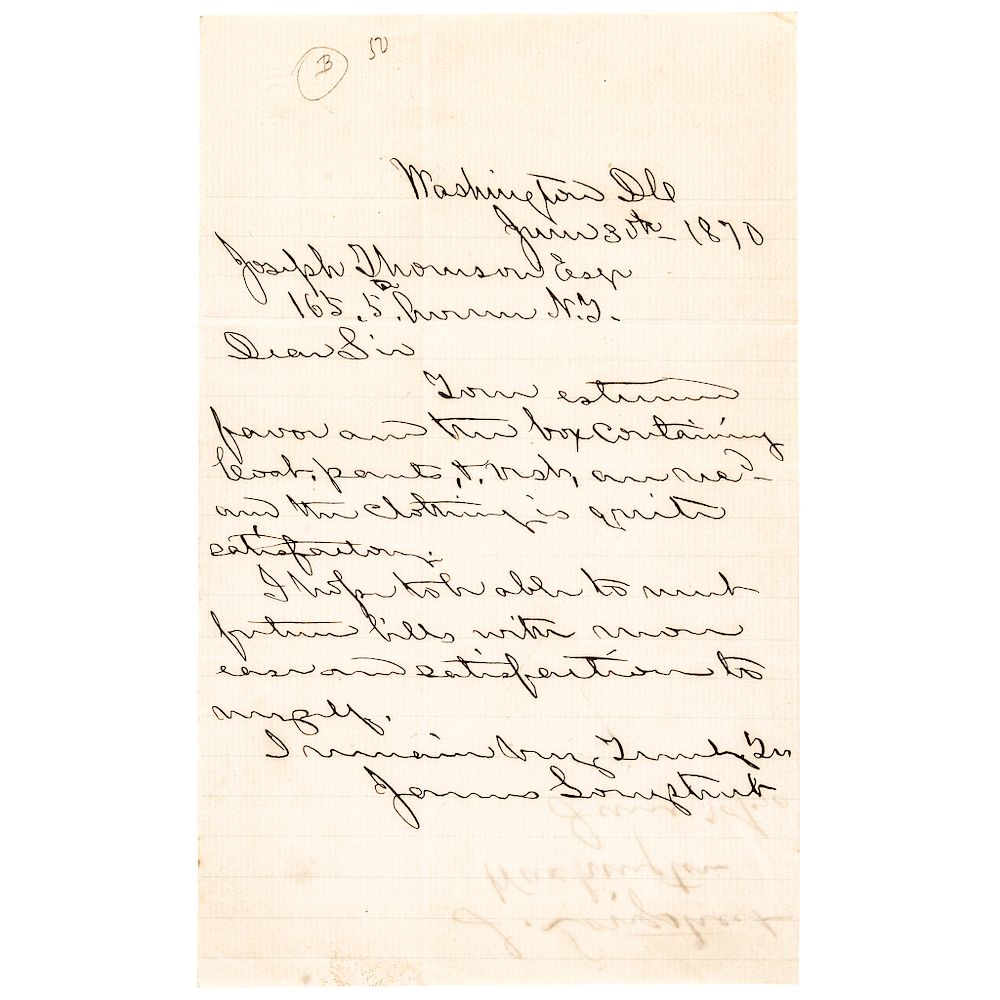 B 50
Washington
June 30th 1870
Joseph Thomson Esqr
165. 5th Avenue N.Y.
Dear Sir
Your esteemed
favor and the box containing
Coat, pants, & vest, are rec'd
and the clothing is quite
satisfactory.
I hope to be able to meet
future bills with more
ease and satisfaction to
myself.
I remain Very Truly Yrs
James Longstreet